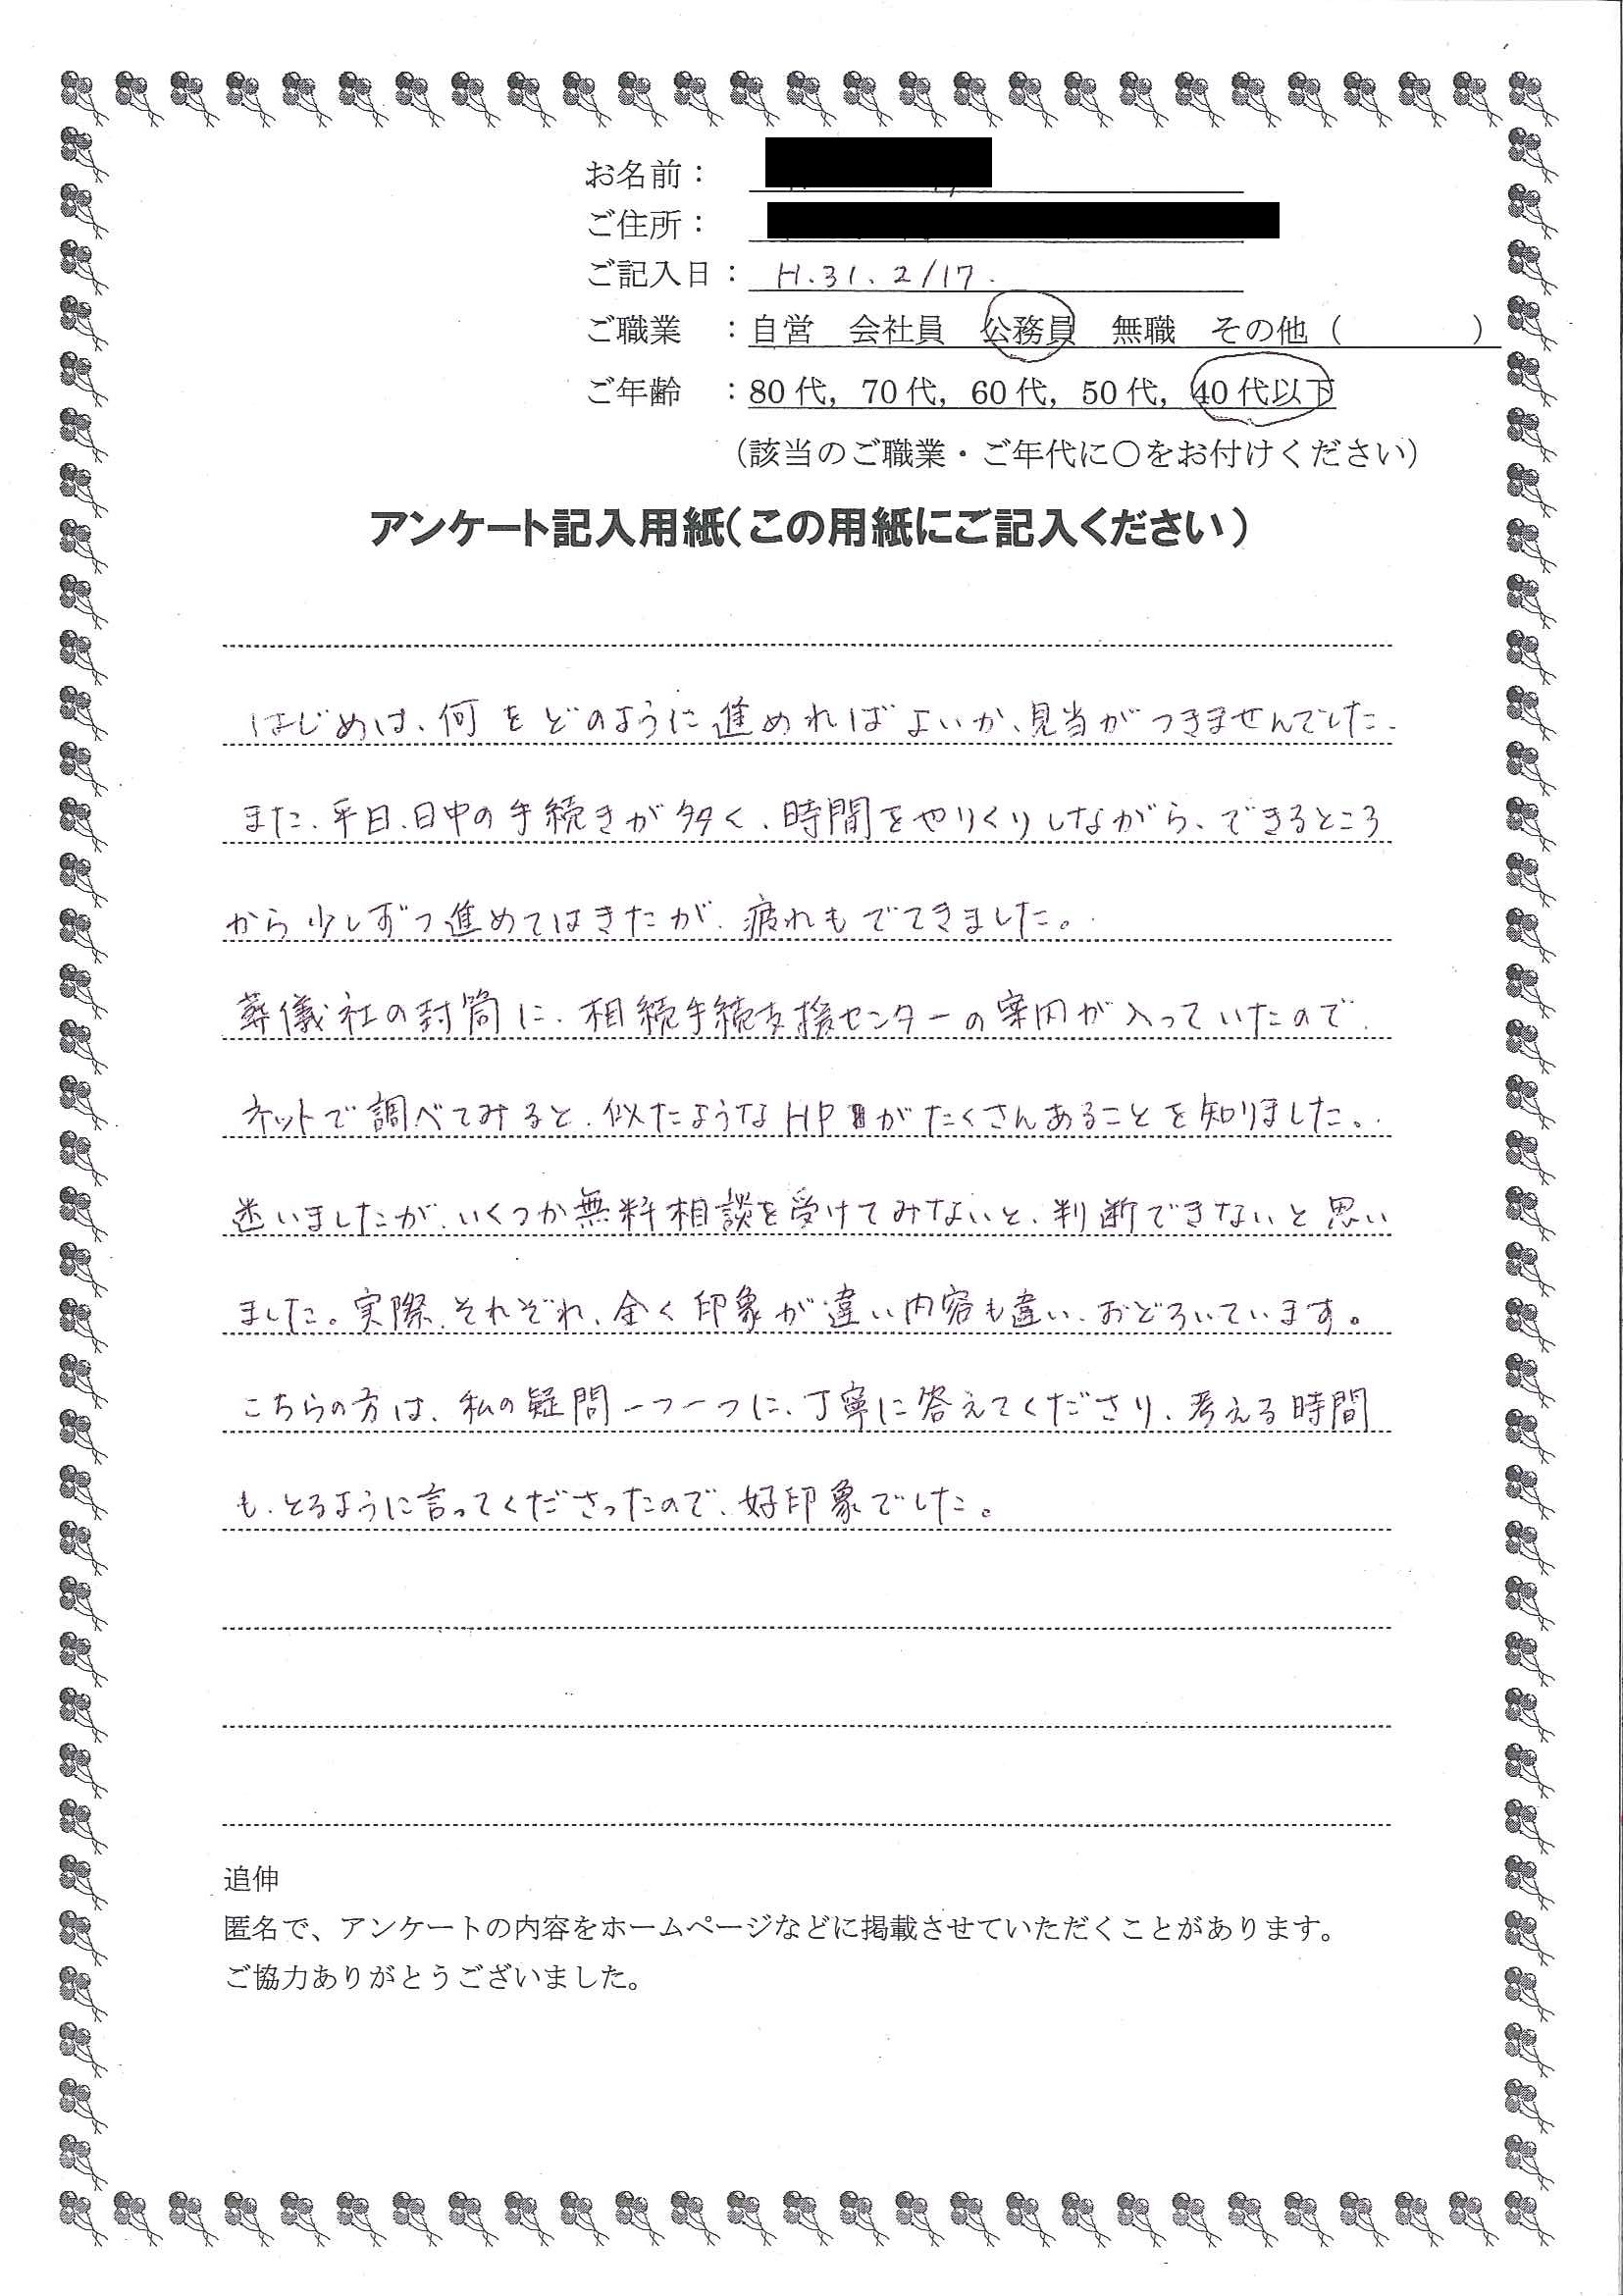 お名前：
ご住所：
ご記入日： H.31.2/17.
ご職業 ：自営 会社員 公務員 無職 その他（ ）
ご年齢 ：80代，70代，60代，50代，40代以下
（該当のご職業・ご年代に〇をお付けください）
アンケート記入用紙（この用紙にご記入ください）
はじめは、何をどのように進めればよいか、見当がつきませんでした.
また、平日、日中の手続きが多く、時間をやりくりしながら、できるところ
から少しずつ進めてはきたが、疲れもでてきました。
葬儀社の封筒に、相続手続支援センターの案内が入っていたので、
ネットで調べてみると、似たようなHPがたくさんあることを知りました。
迷いましたが、いくつか無料相談を受けてみないと、判断できないと思い
ました。実際、それぞれ、全く印象が違い内容も違い、おどろいています。
こちらの方は、私の疑問一つ一つに、丁寧に答えてくださり、考える時間
も、とるように言ってくださったので、好印象でした。
追伸
匿名で、アンケートの内容をホームページなどに掲載させていただくことがあります。
ご協力ありがとうございました。